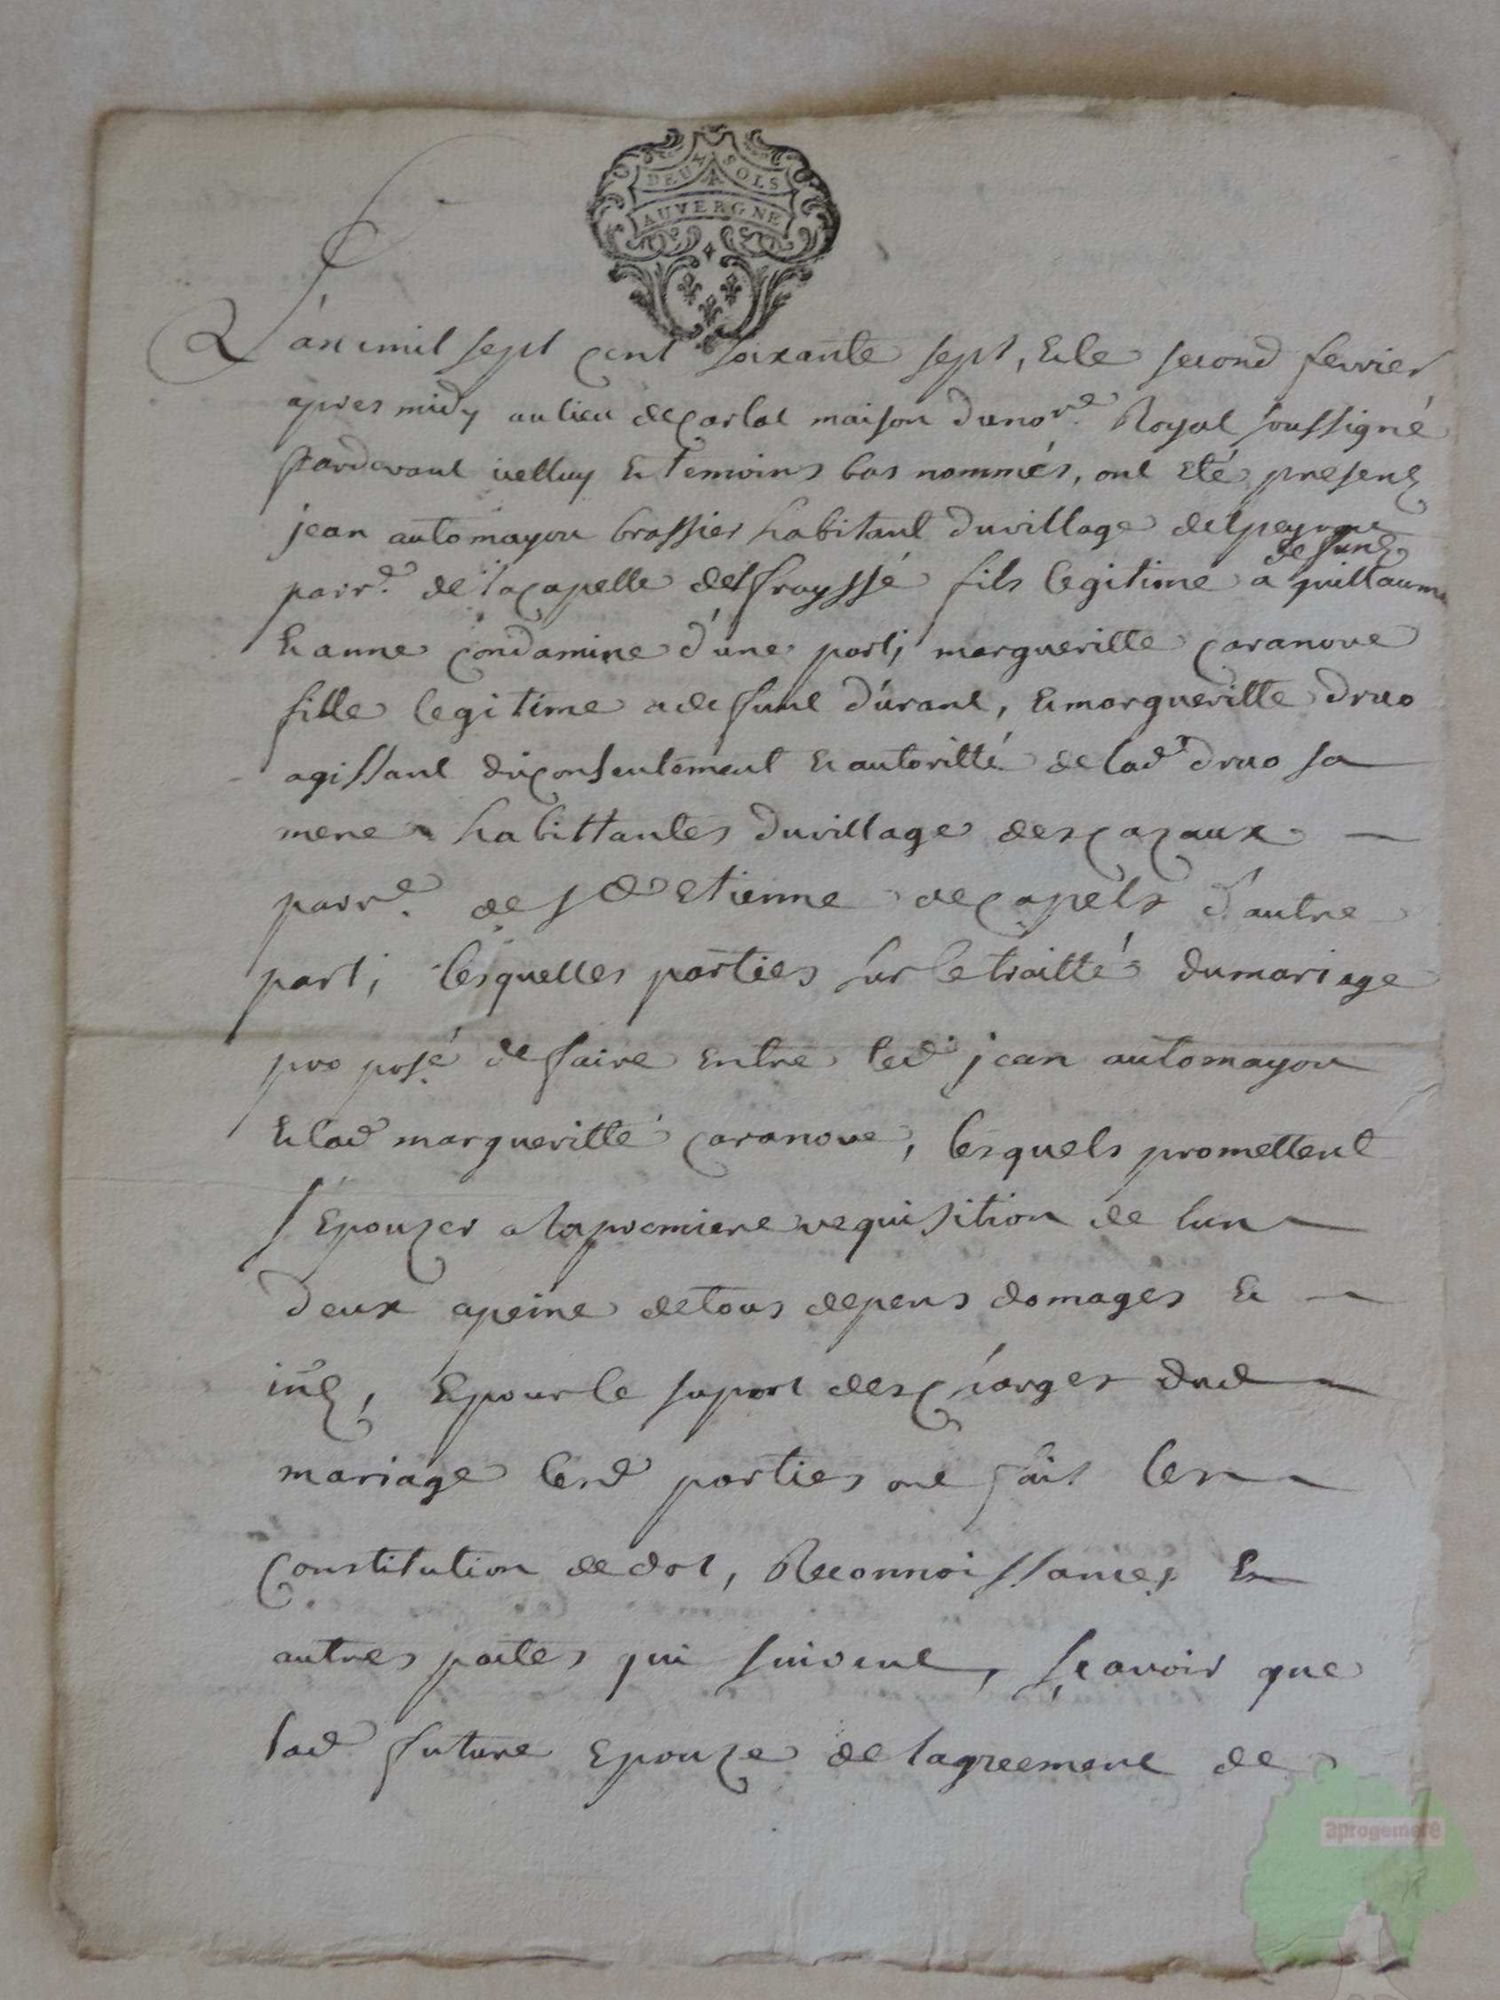 DEUX SOLS
AUVERGNE
L'an mil sept cent soixante sept, & le second fevrier
apres midy au lieu de carlat maison du no.re Royal soussigné
pardevant icelluy & temoins bas nommés, ont eté presens
jean automayou brassier habitant du village
defunts
parr.e de la capelle del frayssé fils legitime a guillaume
& anne condamine d'une part, margueritte caranove
fille legitime a defunt durant, & margueritte druo
agissant du consentement & autoritté de lad.t druo sa
mere habittantes du village des cazaux
parr.e de s.t etienne de capels d'autre
part, lesquelles parties sur le traitté du mariage
proposé de faire entre led. jean automayou
& lad margueritte caranove, lesquels promettent
s'epouzer a la premiere requisition de lun
deux a peine de tous depens domages &
int, & pour le suport des charges dud
mariage lesd parties ont fait les
constitution de dot, Reconnoissances &
autres pactes qui suivent, scavoir que
lad future epouze de lagreement de
aprogemere